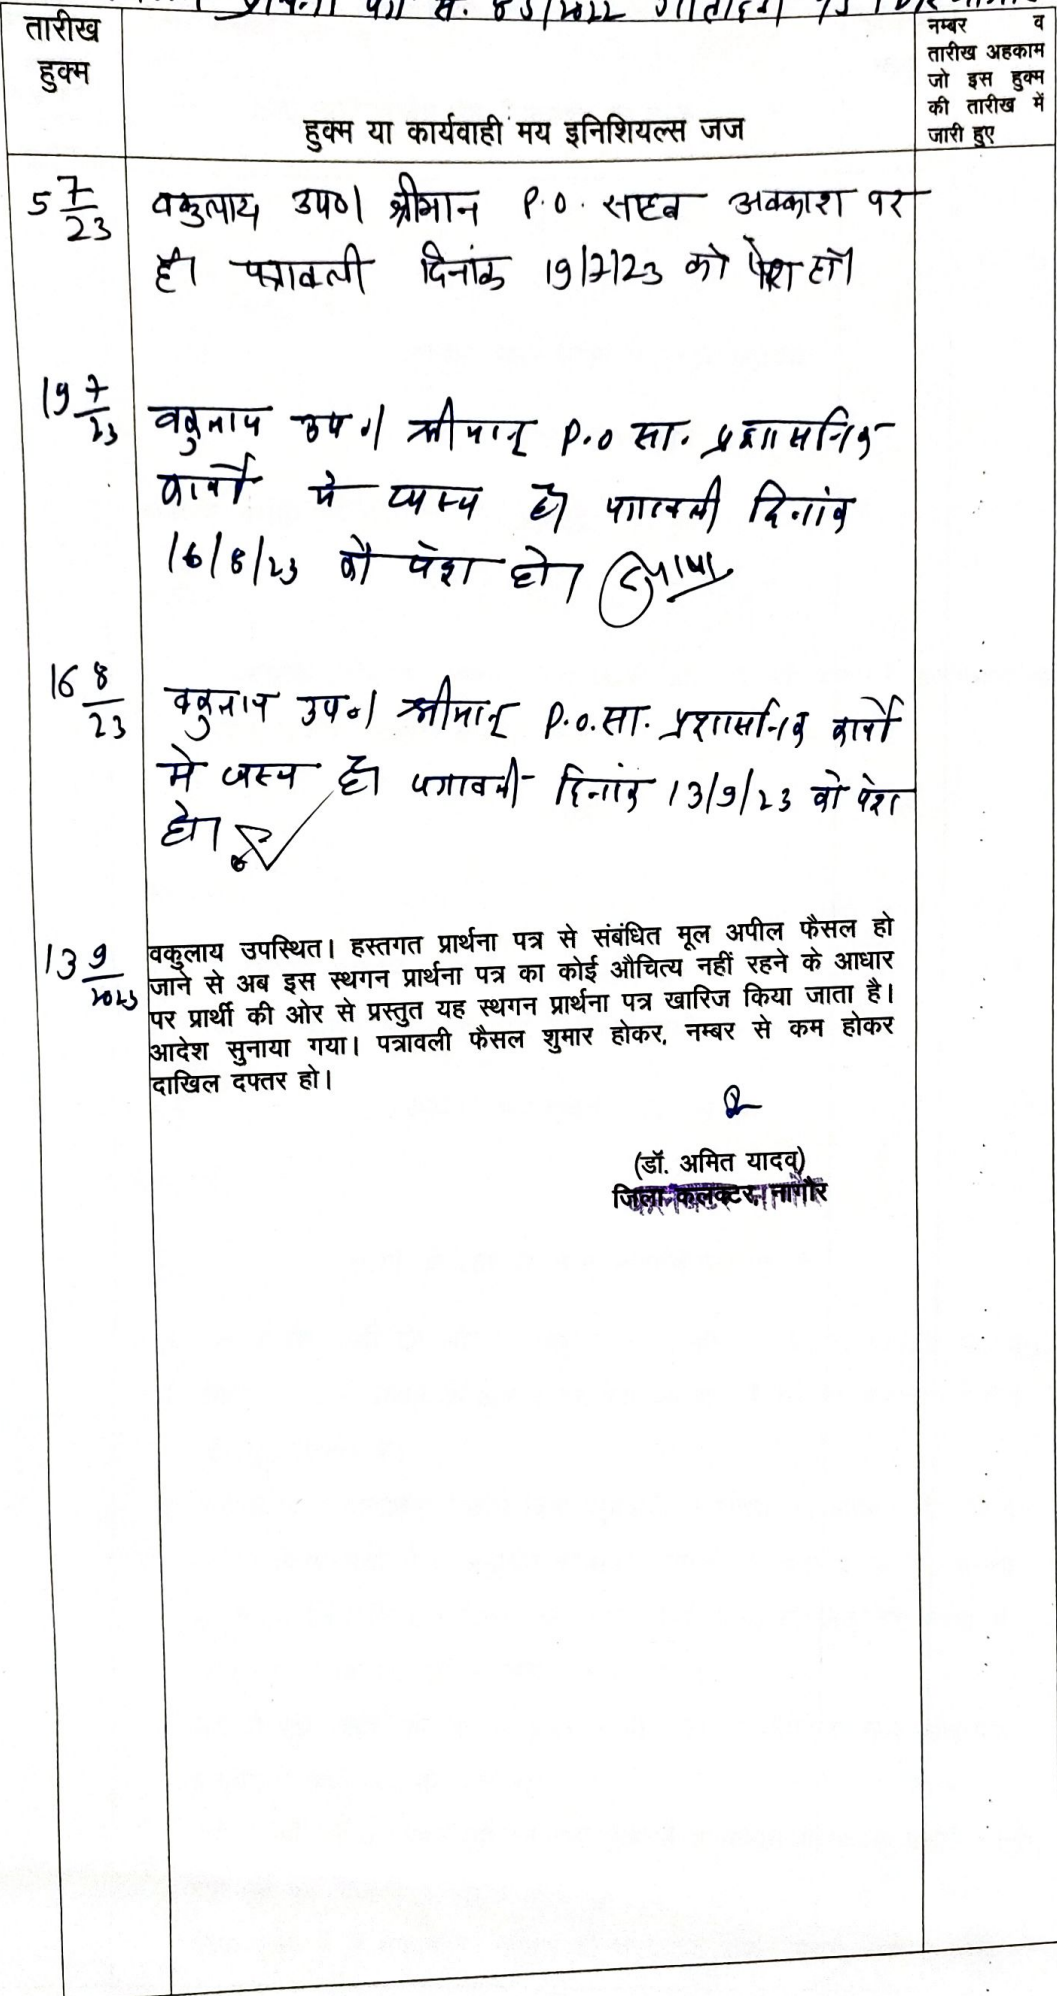 सं. 85/2022
तारीख
हुक्म
हुक्म या कार्यवाही मय इनिशियल्स जज
नम्बर व
तारीख अहकाम
जो इस हुक्म
की तारीख में
जारी हुए
5 7/23
वकुलाय उप०। श्रीमान P.O. साहब अवकाश पर
है। पत्रावली दिनांक 19/7/23 को पेश हो।
19 7/23
वकुलाय उप०। श्रीमान् P.O सा. प्रशासनिक
कार्यो मे व्यस्त है। पत्रावली दिनांक
16/8/23 को पेश हो।
16 8/23
वकुलाय उप०। श्रीमान् P.O. सा. प्रशासनिक कार्यो
मे व्यस्त है। पत्रावली दिनांक 13/9/23 को पेश
हो।
13 9/2023
वकुलाय उपस्थित। हस्तगत प्रार्थना पत्र से संबंधित मूल अपील फैसल हो
जाने से अब इस स्थगन प्रार्थना पत्र का कोई औचित्य नहीं रहने के आधार
पर प्रार्थी की ओर से प्रस्तुत यह स्थगन प्रार्थना पत्र खारिज किया जाता है।
आदेश सुनाया गया। पत्रावली फैसल शुमार होकर, नम्बर से कम होकर
दाखिल दफ्तर हो।
(डॉ. अमित यादव)
जिला कलक्टर, नागौर